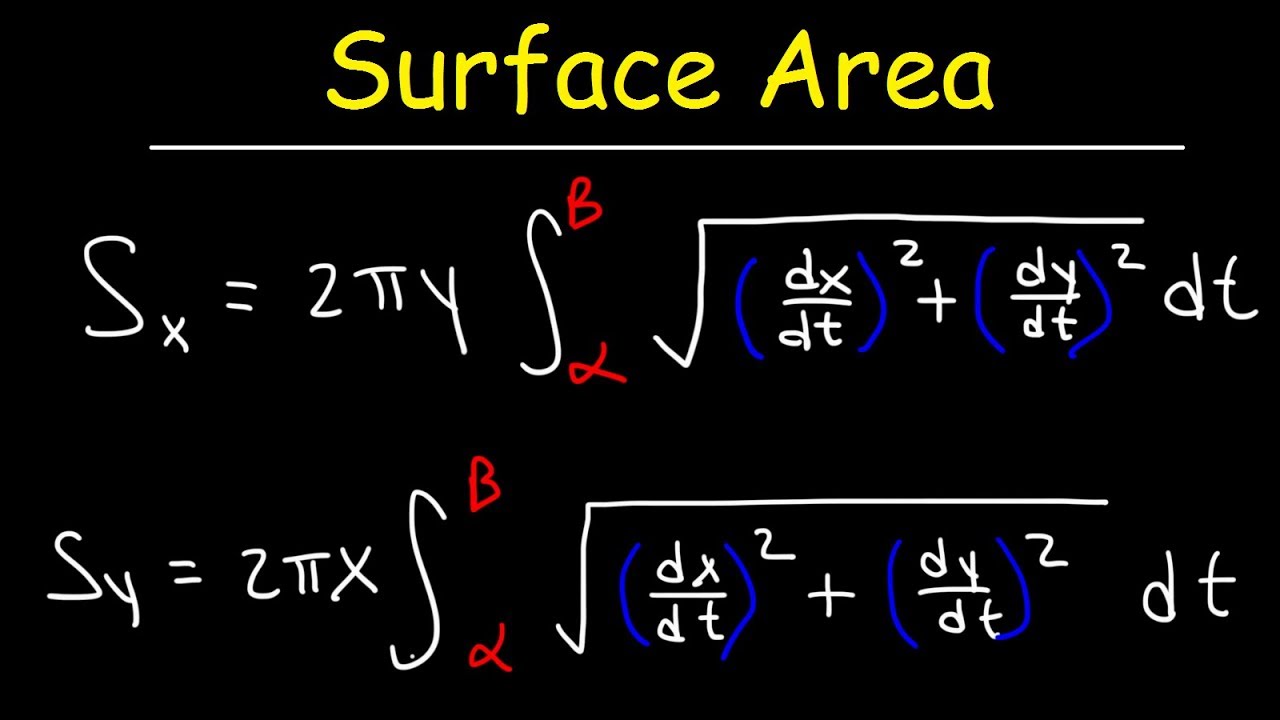 Surface Area
Sₓ = 2πy ∫_α^β √((dx/dt)² + (dy/dt)²) dt
S_y = 2πx ∫_α^β √((dx/dt)² + (dy/dt)²) dt